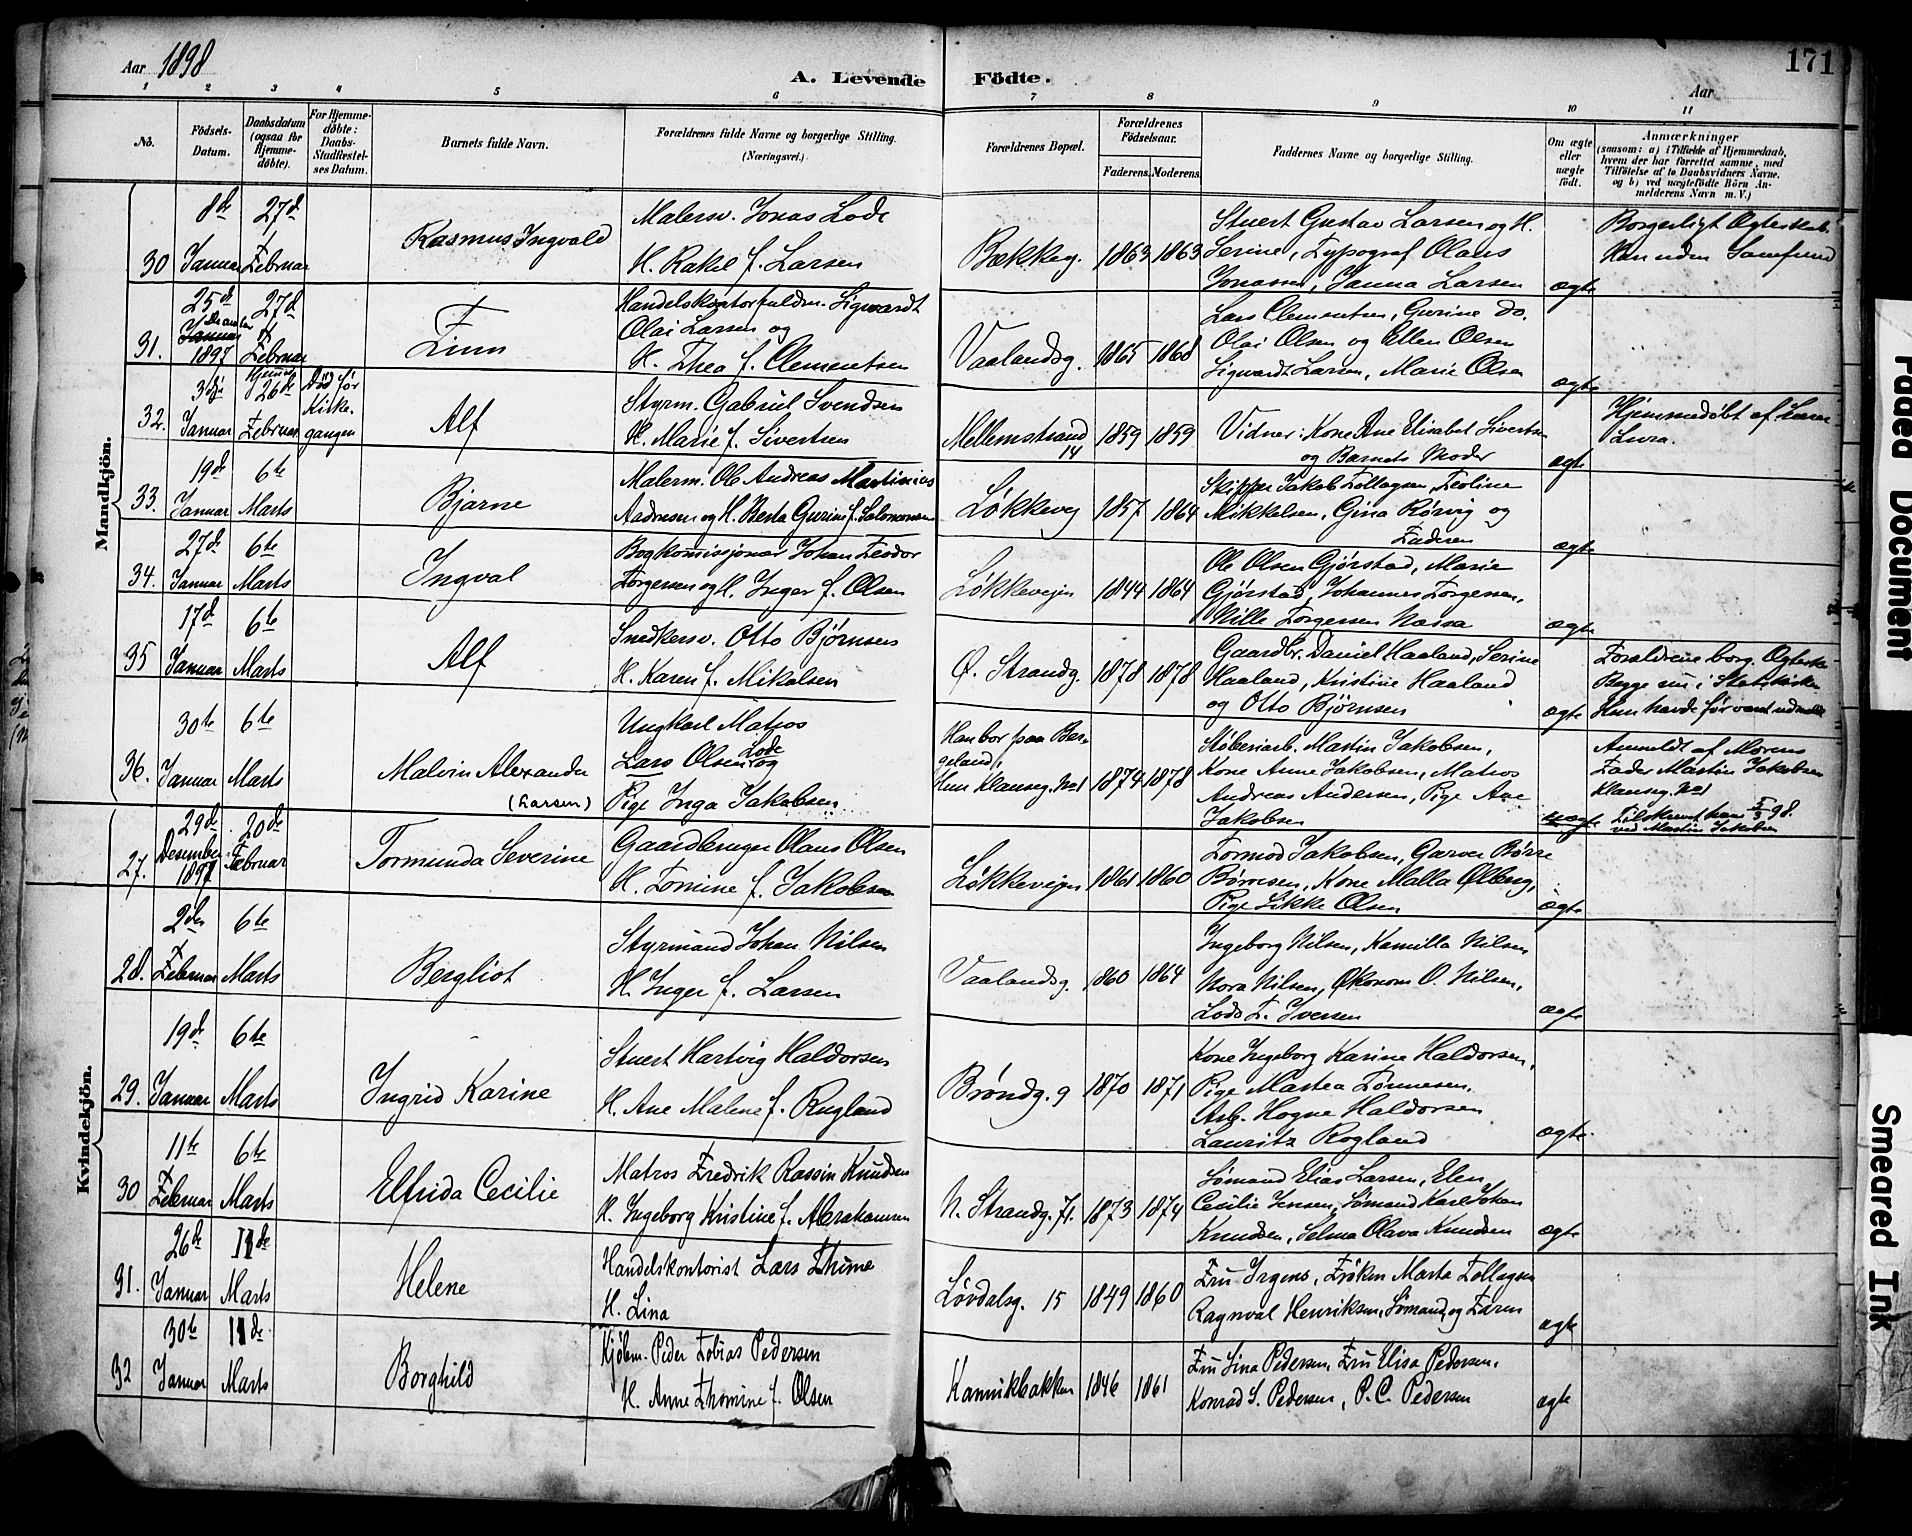 Aar 1898
A. Levende Födte.
171
Aar
1 2 3 4 5 6 7 8 9 10 11
No.
Födsels-Datum.
Daabsdatum (ogsaa for Hjemmedöbte).
For Hjemmedöbte: Daabs-Stadfæstelses Datum.
Barnets fulde Navn.
Forældrenes fulde Navne og borgerlige Stilling.
(Næringsvei.)
Forældrenes Bopæl.
Forældrenes Födselsaar.
Faderens. Moderens.
Faddernes Navne og borgerlige Stilling.
Om ægte eller uægte født.
Anmærkninger
(saasom: a) i Tilfælde af Hjemmedaab, hvem der har forrettet samme, med Tilföielse af to Daabsvidners Navne. og b) ved uægtefödte Börn Anmelderens Navn m. V.)
Mandkjön.
30 8de Januar 27de Februar
Rasmus Ingvald
Malersv. Jonas Lode
H. Rakel f. Larsen
Bækkeg. 1863 1863
Stuert Gustav Larsen og H.
Serine, Typograf Olaus
Jonassen, Janna Larsen
ægte
Borgerligt Ægteskab
Han uden Samfund
31. 25de Januar Desember 1897 27de Februar
Finn
Handelskontorfuldm. Sigvardt
Olai Larsen og
H. Thea f. Clementsen
Vaalandsg. 1865 1868
Lars Clementsen, Gurine do.
Olai Olsen og Ellen Olsen
Sigvardt Larsen, Marie Olsen
ægte
32. Januar Hjemme 26de Februar
Død før Kirkegangen
Alf
Styrm. Gabriel Svendsen
H. Marie f. Sivertsen
Mellemstrand 14 1859 1859
Vidner: Kone Ane Elisabet Sivertsen
og Barnets Moder
ægte
Hjemmedöbt af
Lura.
33. 19de Januar 6te Marts
Bjarne
Malerm. Ole Andreas Martinius
Aadnesen og H. Berta Gurine f. Salomonsen
Løkkevej 1857 1864
Skipper Jakob Tollagsen, Teoline
Mikkelsen, Gina Rørvig og
Faderen
ægte
34. 27de Januar 6te Marts
Ingval
Bogkomissjonær Johan Teodor
Torgersen og H. Inger f. Olsen
Løkkevejen 1844 1864
Ole Olsen Gjørstad, Marie
Gjørstad, Johannes Torgersen,
Nille Torgersen Nassa
ægte
35 17de Januar 6te Marts
Alf
Snedkersv. Otto Bjørnsen
H. Karen f. Mikalsen
Ø. Strandg. 1878 1878
Gaardbr. Daniel Haaland, Serine
Haaland, Kristine Haaland
og Otto Bjørnsen
ægte
Forældrene borg. Ægtesk.
Begge nu i Statskirken
Hun havde før været udmeldt
36. 30te Januar 6te Marts
Malvin Alexander
(Larsen)
Ungkarl Matros
Lars Olsen Lode og
Pige Inga Jakobsen
Han bor paa Bergeland,
Hun Klauseg. No 1 1874 1878
Støberiarb. Martin Jakobsen,
Kone Anne Jakobsen, Matros
Andreas Andersen, Pige Ane
Jakobsen
uægte
Anmeldt af Morens
Fader Martin Jakobsen
Klauseg. No 1
Tilskrevet ham 5/3 98.
ved Martin Jakobsen
Kvindekjön.
27. 29de Desember 1897 20de Februar
Tormunda Severine
Gaardbruger Olaus Olsen
H. Tomine f. Jakobsen
Løkkevejen 1861 1860
Tormod Jakobsen, Garver Børre
Børresen, Kone Malla Ølberg,
Pige Sikke Olsen
ægte
28. 2den Februar 6te Marts
Bergliot
Styrmand Johan Nilsen
H. Inger f. Larsen
Vaalandsg. 1860 1864
Ingeborg Nilsen, Kamilla Nilsen
Nora Nilsen, Økonom O. Nilsen,
Lods T. Iversen
ægte
29. 19de Januar 6te Marts
Ingrid Karine
Stuert Hartvig Haldorsen
H. Ane Malene f. Rugland
Brøndg. 9 1870 1871
Kone Ingeborg Karine Haldorsen,
Pige Martea Tønnesen,
Arb. Hogne Haldorsen
Lauritz Rogland
ægte.
30 11te Februar 6te Marts
Elfrida Cecilie
Matros Fredrik Rassin Knudsen
H. Ingeborg Kristine f. Abrahamsen
N. Strandg. 71. 1873 1874
Sømand Elias Larsen, Elen
Cecilie Jensen, Sømand Karl Johan
Knudsen, Selma Olava Knudsen
ægte
31. 26de Januar 11de Marts
Helene
Handelskontorist Lars Thime
H. Lina
Løvdalsg. 15 1849 1860
Fru Irgens, Frøken Marta Tollagsen
Ragnval Henriksen, Sømand, og Faren
ægte
32 30te Januar 11de Marts
Borghild
Kjøbm. Peder Tobias Pedersen
H. Anne Thomine f. Olsen
Kannikbakken 1846 1861
Fru Sina Pedersen, Fru Elisa Pedersen,
Konrad S. Pedersen, P. C. Pedersen
ægte
Faded Document
Smeared Ink